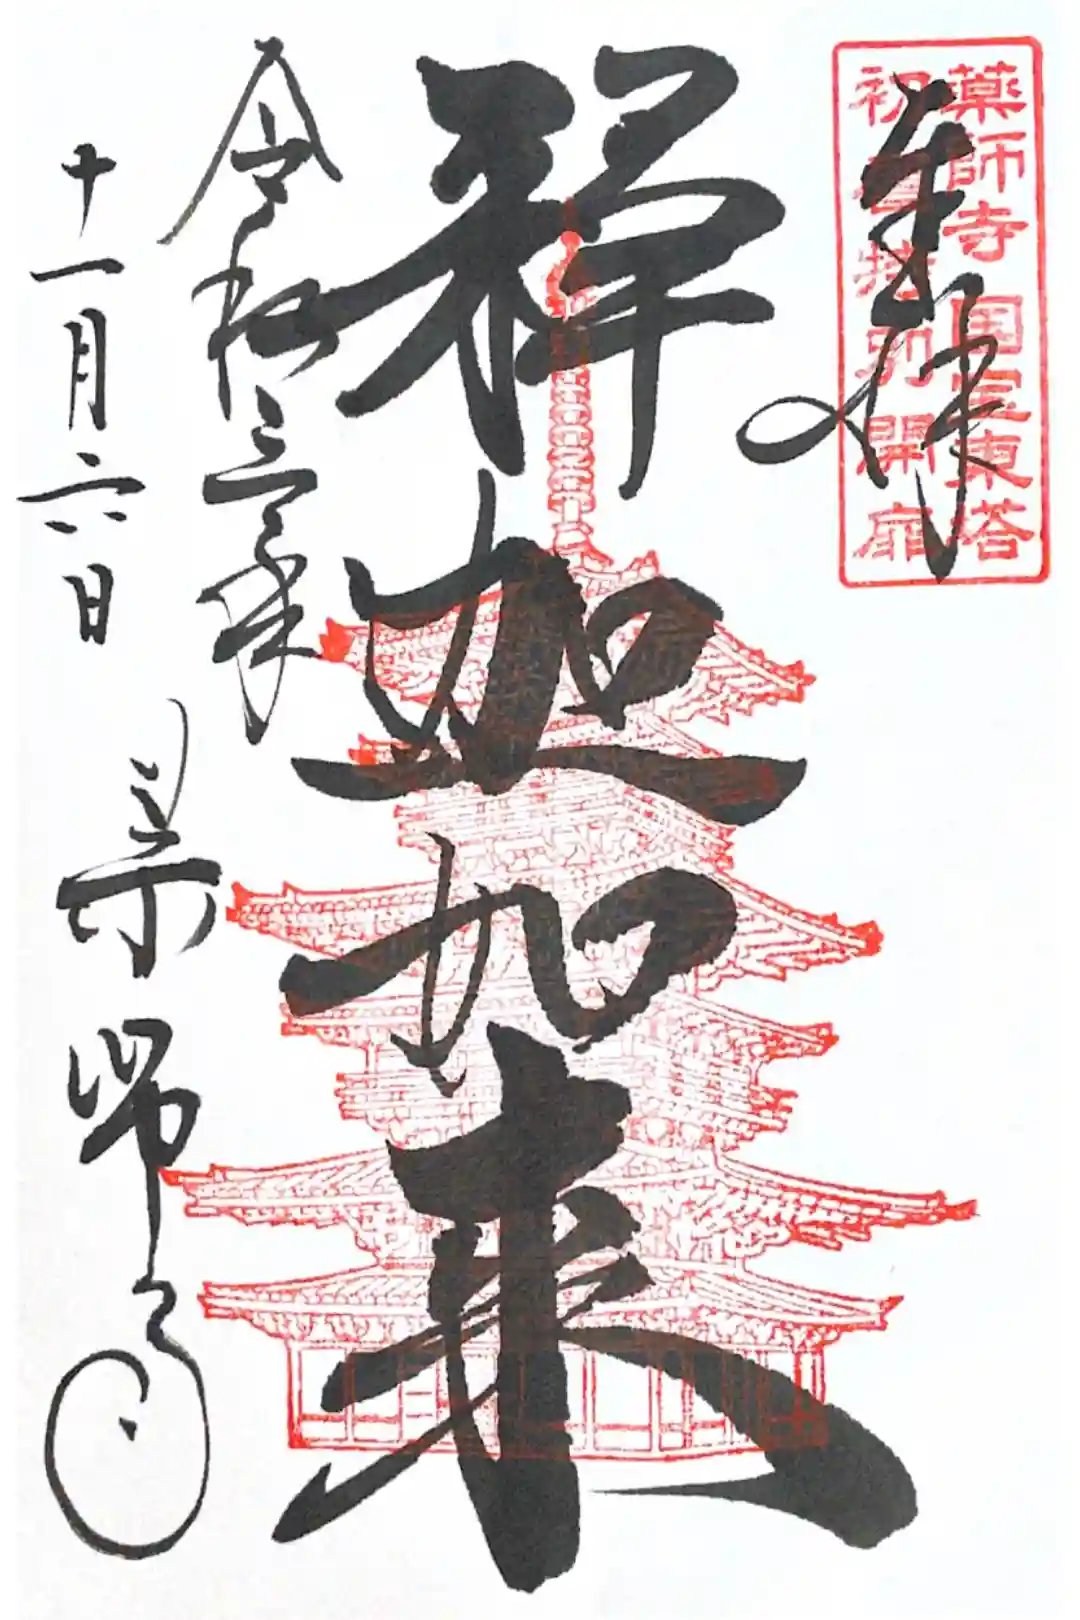 奉拝
薬師寺 国宝東塔
初重特別開扉
釈迦如来
令和三年
十一月六日
薬師寺